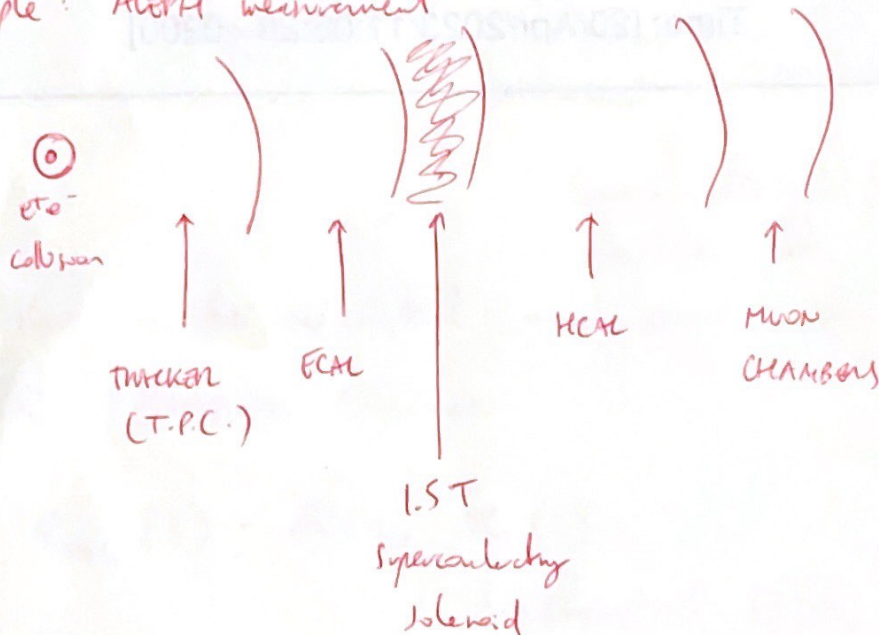 ple: ALEPH measurement
e+e-
collision
TRACKER
(T.P.C.)
ECAL
1.5 T
superconducting
solenoid
HCAL
MUON
CHAMBERS